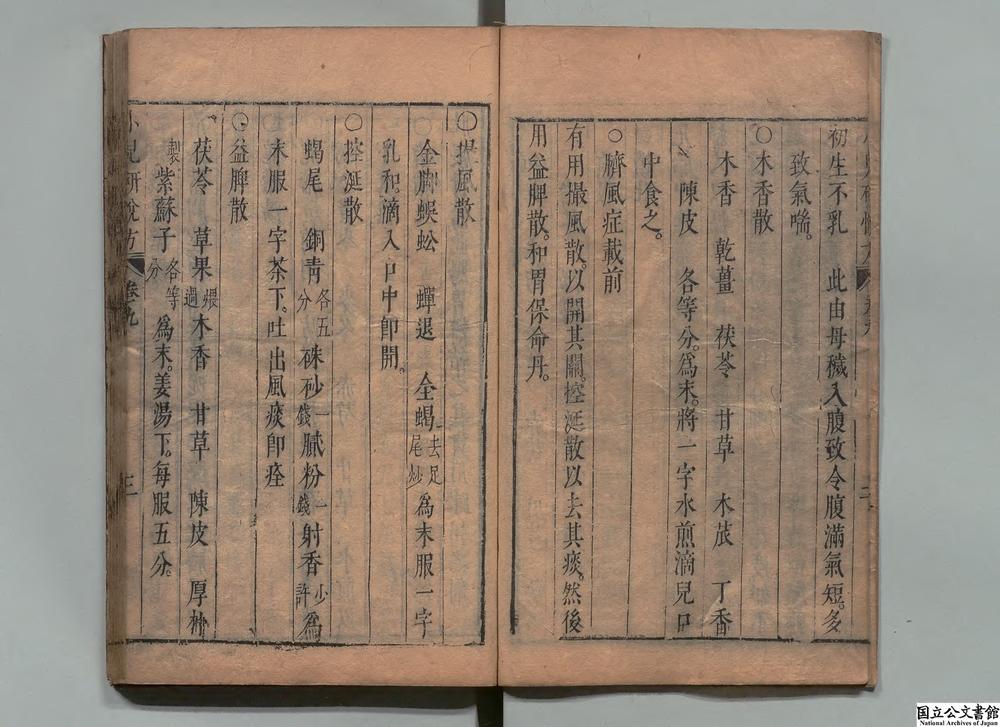 初生不乳　此由母穢入腹致令腹滿氣短。多
致氣喘。
〇木香散
木香　乾薑　茯苓　甘草　木茋　丁香
陳皮　各等分。爲末。將一字水煎滴兒口
中食之。
〇臍風症載前
有用撮風散。以開其關。控涎散以去其痰。然後
用益脾散。和胃保命丹。
〇撮風散
金脚蜈蚣　蟬退　全蝎去足尾炒爲末服一字
乳和滴入口中即開。
〇控涎散
蝎尾　銅青各五分硃砂一錢膩粉一錢射香少許爲
末服一字茶下。吐出風痰即痊
〇益脾散
茯苓　草果煨過木香　甘草　陳皮　厚朴
製紫蘇子各等分爲末。姜湯下。每服五分。
小兒研悅方　卷九　三
国立公文書館
National Archives of Japan